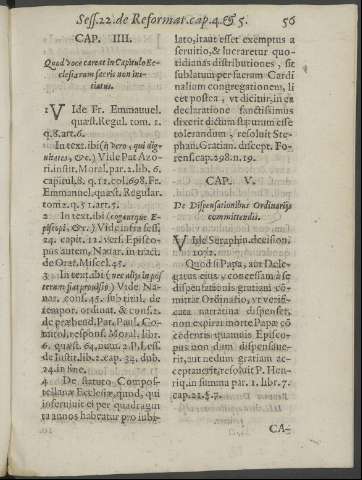 Sess. 22. de Reformat. cap. 4. & 5. 56
CAP. IIII.
Quod voce careat in Capitulo Ec-
clesiarum sacris non ini-
tiatus.
1 Vide Fr. Emmanuel.
quæst. Regul. tom. 1.
q. 8. art. 6.
In text. ibi (ij vero, qui dig-
nitates, &c.) Vide Pat Azo-
ri. instit. Moral. par. 2. lib. 6.
capitul. 8. q. 12. col. 698. Fr.
Emmanuel. quæst. Regular.
tom 2. q. 51. art. 5.
2 In text. ibi (cogantque E-
piscopi, &c.) Vide infra sess.
24. capit. 12. vers. Episco-
pus autem, Nauar. in tract.
de Orat. Miscel. 45.
3 In text. ibi (nec alijs in pos
terum fiat prouisio) Vide Na-
uar. cons. 45. sub titul. de
tempor. ordinat. & cons. 2.
de præbend. Par. Paul. Co-
mitol. respons. Moral. libr.
6. quæst. 64. num. 2. P. Less.
de Instit. lib. 2. cap. 34. dub.
24. in fine.
4 De statuto Compos-
tellanæ Ecclesiæ, quod, qui
inseruiuit ei per quadragin
ta annos habeatur pro iubi-
lato, ita vt esset exemptus a
seruitio, & lucraretur quo-
tidianas distributiones, sit
sublatum per sacram Cardi
nalium congregationem, li
cet postea, vt dicitur, in ea
declaratione sanctissimus
dixerit dictum statutum esse
tolerandum, resoluit Ste-
phan. Gratian. discept. Fo-
rens. cap. 298. n. 19.
CAP. V.
De Dispensationibus Ordinarijs
committendis.
Vide Seraphin. decision.
1072.
Quid si Papa, aut Dele-
gatus eius, concessam à se
dispensationis gratiam cō-
mittat Ordinario, vt verifi-
cata narratina dispenset,
non expiret morte Papæ cō
cedentis quamuis Episco-
pus non dum dispensaue-
rit, aut nedum gratiam ac-
ceptauerit, resoluit P. Hen-
riq. in summa par. 1. libr. 7.
cap. 21. §. 7.
CA-